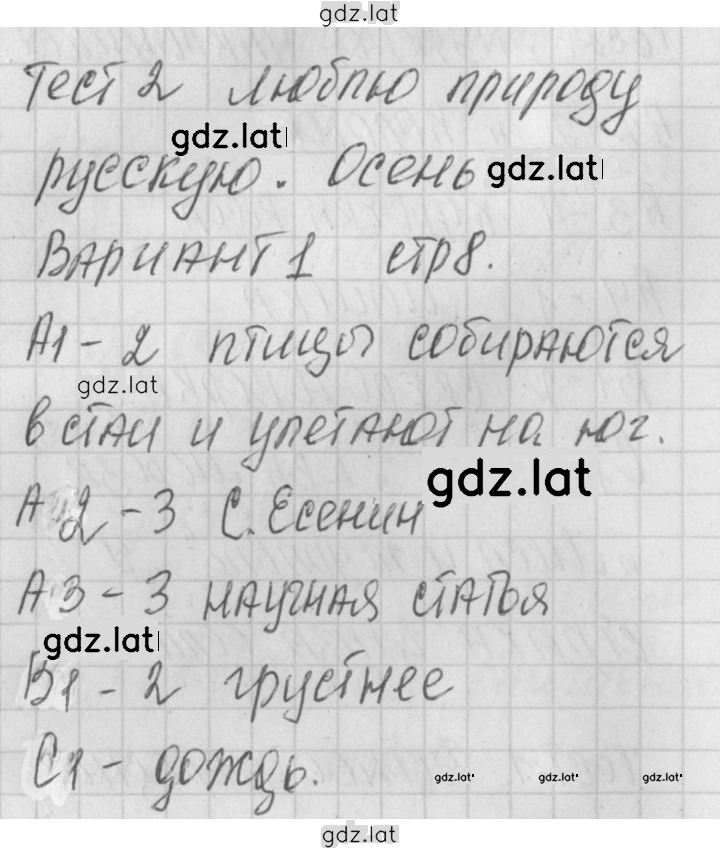 gdz.lat
Тест 2 Люблю природу
gdz.lat
русскую. Осень gdz.lat
Вариант 1 стр 8.
А1 - 2 птицы собираются
gdz.lat
в стаи и улетают на юг.
gdz.lat
А2 - 3 С. Есенин
А3 - 3 научная статья
gdz.lat
В1 - 2 грустнее
С1 - дождь.
gdz.lat gdz.lat gdz.lat
gdz.lat